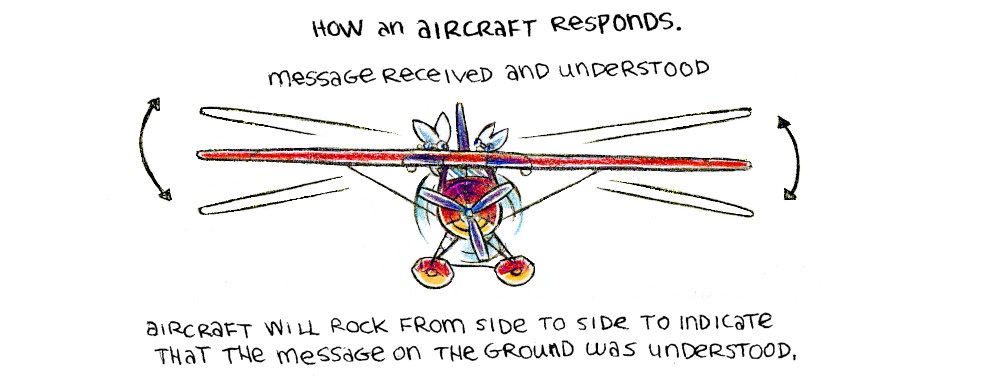 HOW an aIRCRAFT RESPONDS.
message ReceIVeD anD unDeRSTOOD
aIRCRAFT WILL ROCK FROM SIDE TO SIDE TO InDICaTe
THaT THe message on THe GROUnD was unDeRSTOOD.